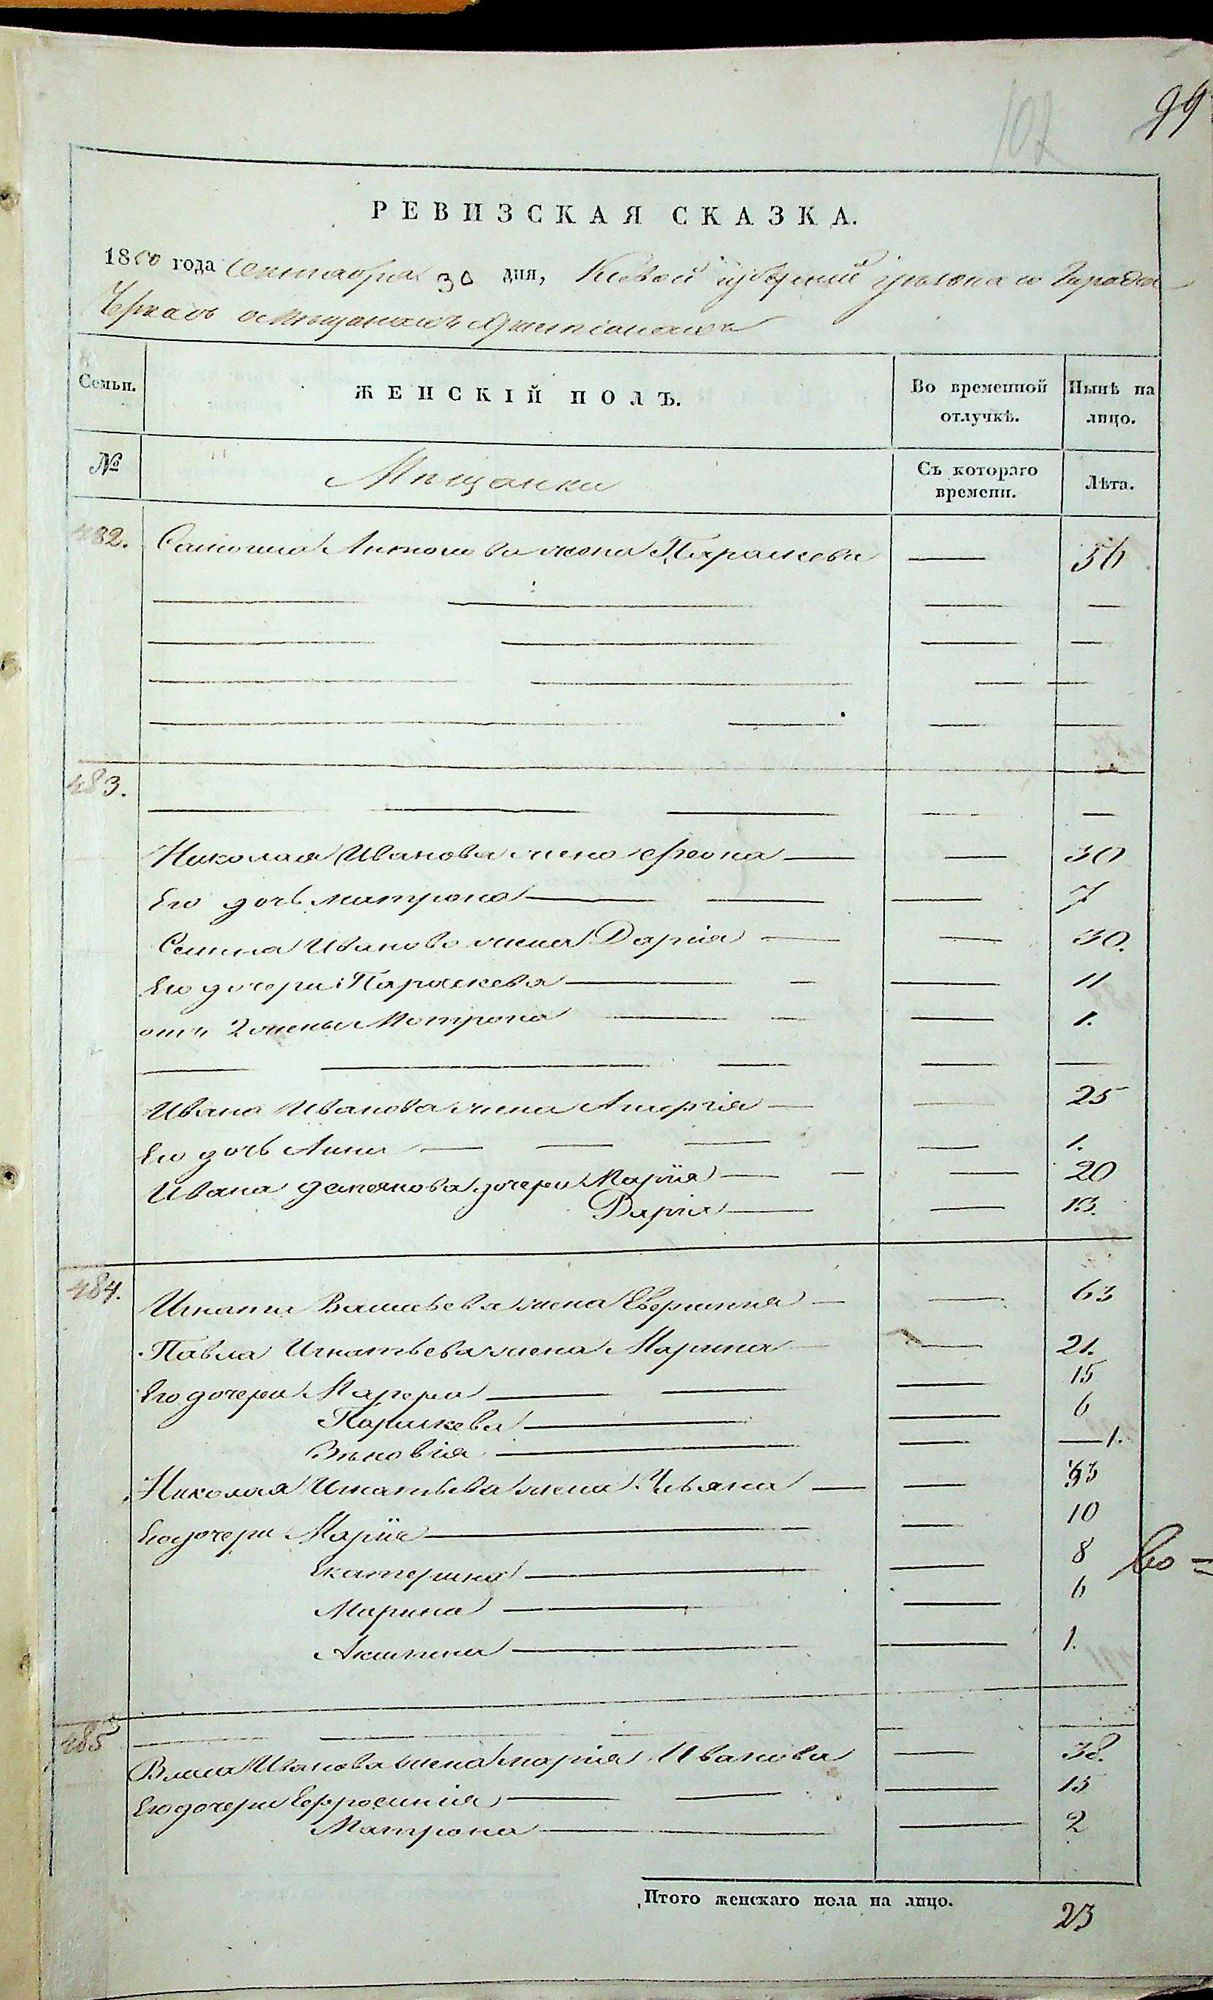 102
99
РЕВИЗСКАЯ СКАЗКА.
1850 года Сентября 30 дня, Киевской губерніи уѣзда и Города
Черкасъ о мѣщанахъ христіанахъ
Семьи.
ЖЕНСКІЙ ПОЛЪ.
Во временной отлучкѣ.
Нынѣ на лицо.
№
Мѣщанки
Съ котораго времени.
Лѣта.
482. Антонова жена Параскева — 56
483.
Николая Иванова жена — 30
Его дочь Матрона — 7
Семена Иванова жена Дарія — 30.
Его дочери Параскева — 11
отъ 2 жены Матрона — 1.
Ивана Иванова жена — 25
Его дочь Анна — 1.
Ивана дочери Марія — 20
Дарія — 13.
484. Игната Васильева жена — 63
Павла Игнатьева жена Марина — 21.
Его дочери — 15
Параскева — 6
Зѣновія — 1.
Николая Игнатьева жена Ульяна — 33
Его дочери Марія — 10
Екатерина — 8
Марина — 6
Акилина — 1.
485
Власа Иванова жена Марія Иванова — 38.
Его дочери Ефросинія — 15
Матрона — 2
Итого женскаго пола на лицо. 23